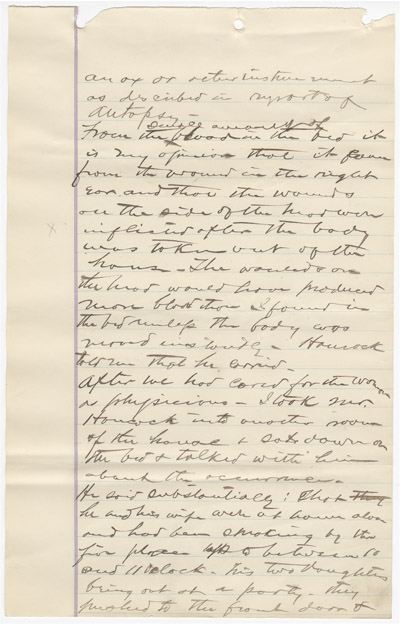 an ax or other instrument
as described in report of
autopsy.
small amount of
From the blood on the bed it
is my opinion that it came
from the wound in the right
ear and that the wounds
on the side of the head were
inflicted after the body
was taken out of the
house - The wounds on
the head would have produced
more blood than I found in
the bed unless the body was
moved instantly - Hancock
told me that he carried.
After we had cared for the woman
as physicians - I took Mr.
Hancock into another room
of the house & sat down on
the bed & talked with him
about the occurrence -
He said substantially: That they
he and his wife were at home alone
and had been smoking by the
fire place up to between 10
and 11 o'clock. His two daughters
being out at a party - they
pushed to the front door &